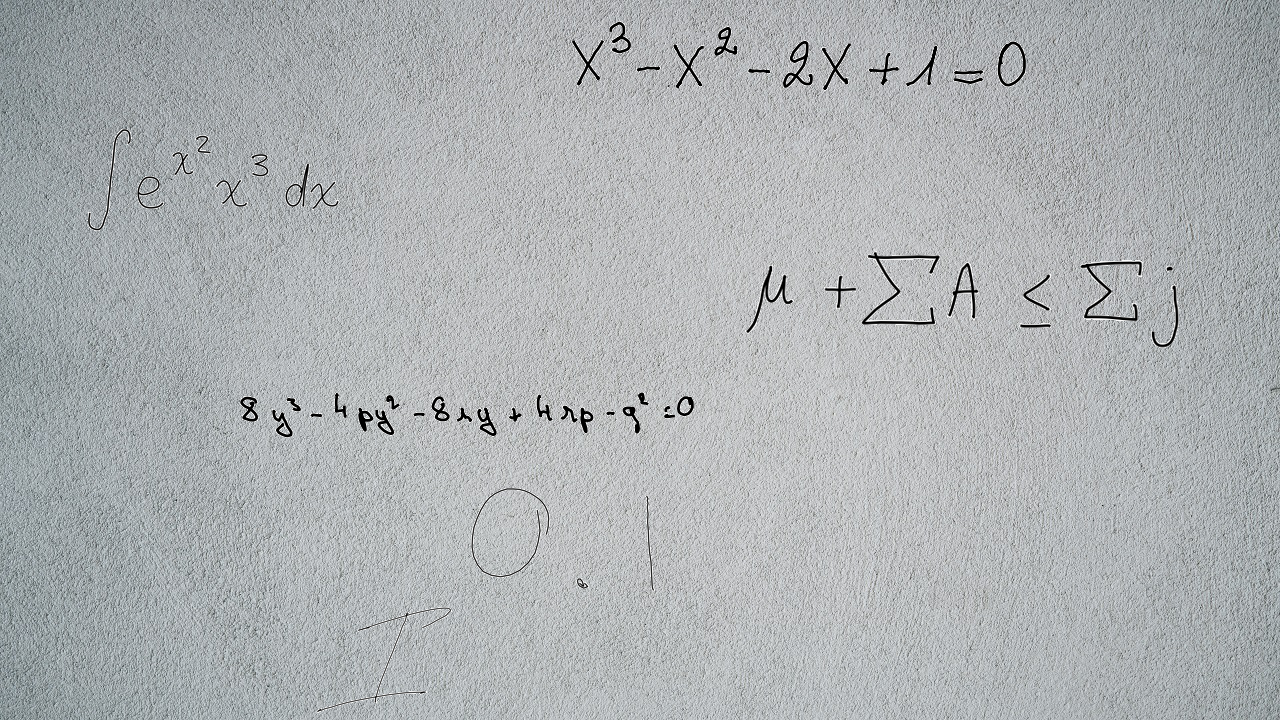 X³ - X² - 2X + 1 = 0
∫ e^{x²} x³ dx
μ + ∑ A ≤ ∑ j
8y³ - 4py² - 8ry + 4rp - q² = 0
0.1
I